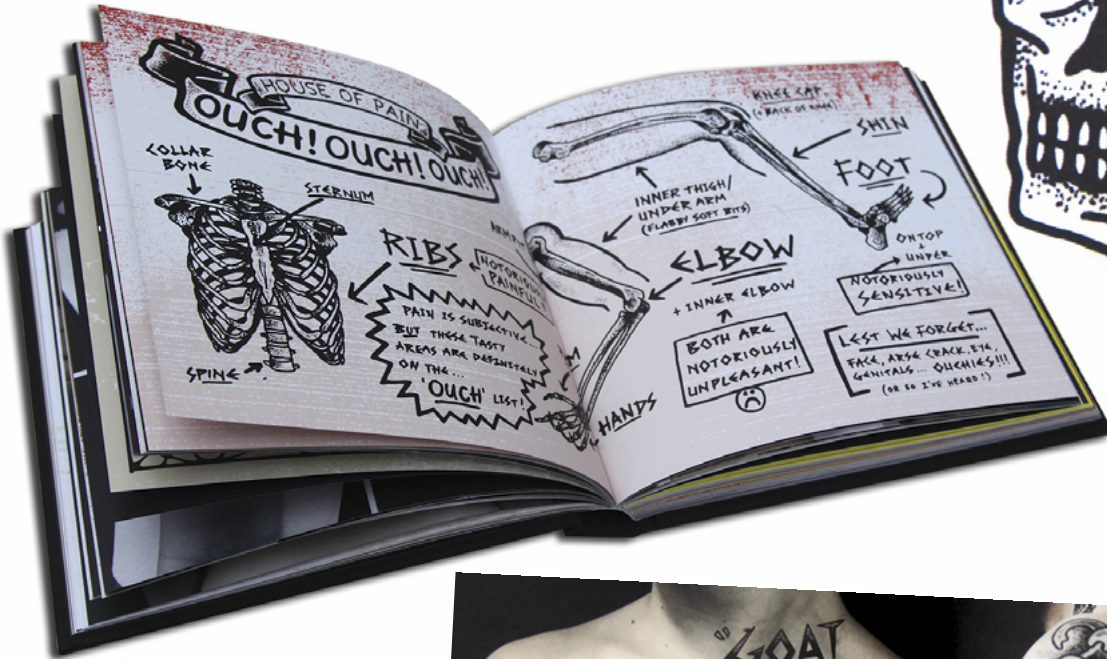 HOUSE OF PAIN
OUCH! OUCH! OUCH!
COLLAR
BONE
STERNUM
RIBS
NOTORIOUSLY
PAINFUL
PAIN IS SUBJECTIVE...
BUT THESE TASTY
AREAS ARE DEFINETELY
ON THE...
'OUCH' LIST!
SPINE
KNEE CAP
(+ BACK OF KNEE)
SHIN
FOOT
ONTOP
+
UNDER
NOTORIOUSLY
SENSITIVE!
INNER THIGH/
UNDER ARM
(FLABBY SOFT BITS)
ARMPIT
ELBOW
+ INNER ELBOW
BOTH ARE
NOTORIOUSLY
UNPLEASANT!
HANDS
LEST WE FORGET...
FACE, ARSE CRACK, EYE,
GENITALS... OUCHIES!!!
(OR SO I'VE HEARD!)
"GOAT